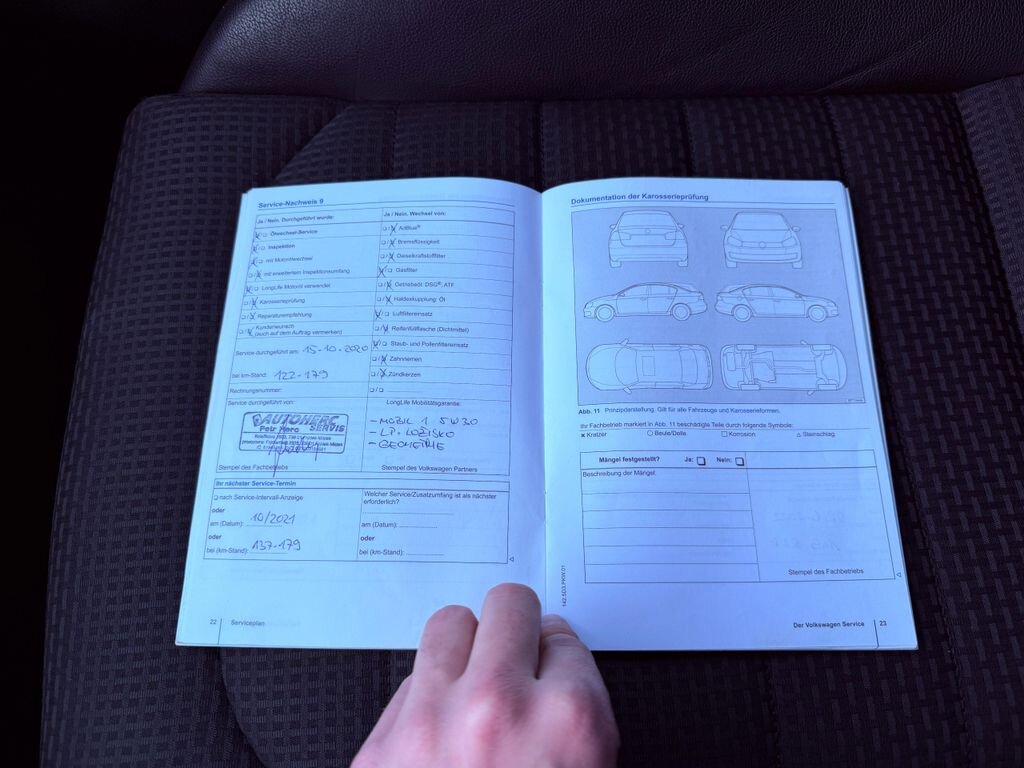 Service-Nachweis 9
Ja / Nein. Durchgeführt wurde:
Ölwechsel-Service
Inspektion
mit Motorölwechsel
mit erweitertem Inspektionsumfang
LongLife Motoröl verwendet
Karosserieprüfung
Reparaturempfehlung
Kundenwunsch
(auch auf dem Auftrag vermerken)
Service durchgeführt am: 15-10-2020
bei km-Stand: 122-179
Rechnungsnummer:
Service durchgeführt von:
AUTOHERC
Petr Herc SERVIS
Stempel des Fachbetriebs
Ja / Nein. Wechsel von:
AdBlue®
Bremsflüssigkeit
Dieselkraftstofffilter
Gasfilter
Getriebeöl: DSG®, ATF
Haldexkupplung: Öl
Luftfiltereinsatz
Reifenfüllflasche (Dichtmittel)
Staub- und Pollenfiltereinsatz
Zahnriemen
Zündkerzen
LongLife Mobilitätsgarantie:
- MOBIL 1 5W30
- LP. LOŽISKO
- GEOMETRIE
Stempel des Volkswagen Partners
Ihr nächster Service-Termin
nach Service-Intervall-Anzeige
oder
am (Datum): 10/2021
oder
bei (km-Stand): 137-179
Welcher Service/Zusatzumfang ist als nächster
erforderlich?
am (Datum):
oder
bei (km-Stand):
22 Serviceplan
Dokumentation der Karosserieprüfung
Abb. 11 Prinzipdarstellung. Gilt für alle Fahrzeuge und Karosserieformen.
Ihr Fachbetrieb markiert in Abb. 11 beschädigte Teile durch folgende Symbole:
× Kratzer ○ Beule/Delle □ Korrosion △ Steinschlag
Mängel festgestellt? Ja: Nein:
Beschreibung der Mängel:
Stempel des Fachbetriebs
142.5D3.PKW.01
Der Volkswagen Service 23